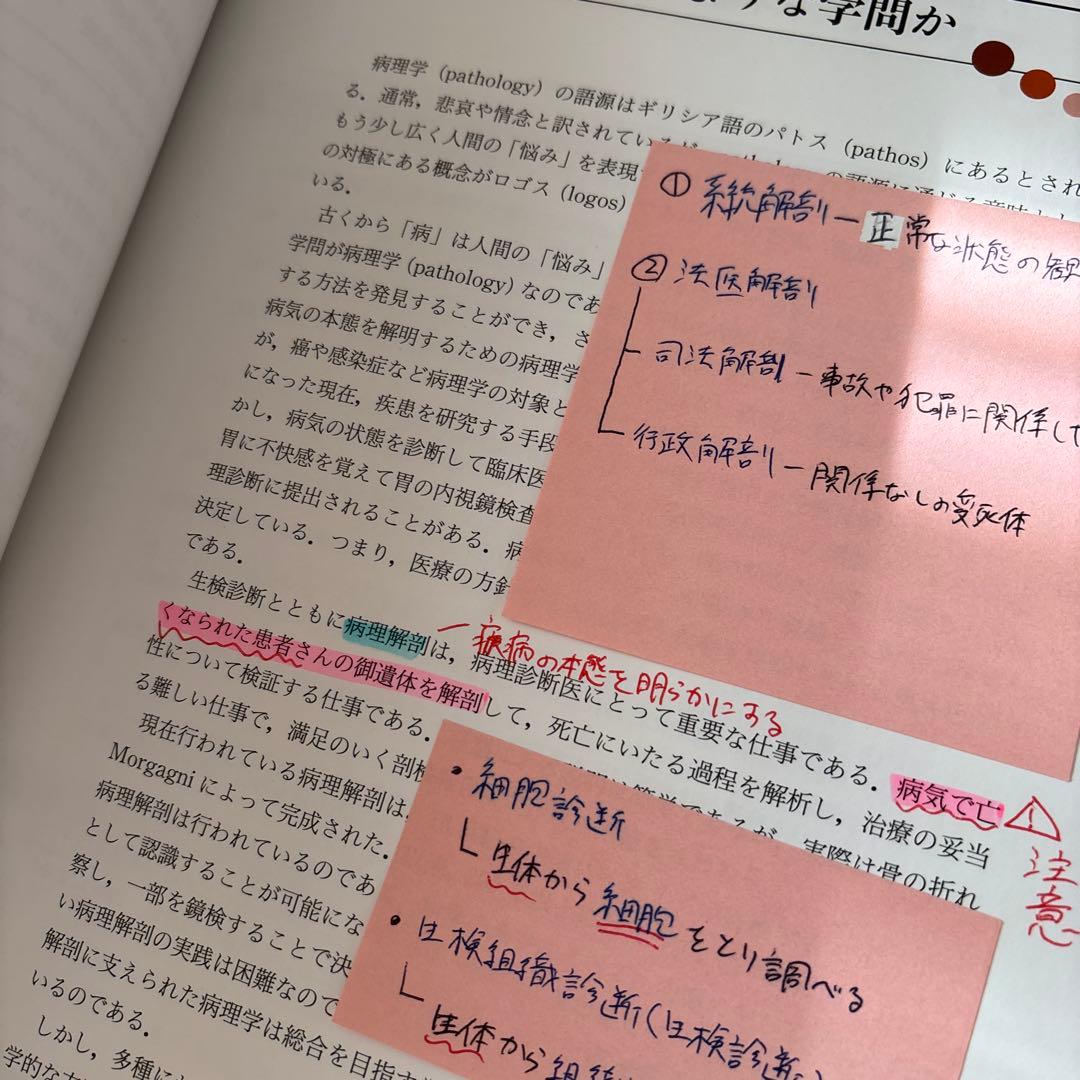 うな学問か
病理学(pathology)の語源はギリシア語のパトス(pathos)にあるとされ
る.通常,悲哀や情念と訳されている
もう少し広く人間の「悩み」を表現
の対極にある概念がロゴス(logos)
いる.
古くから「病」は人間の「悩み」
学問が病理学(pathology)なのであ
する方法を発見することができ,さ
病気の本態を解明するための病理学
が,癌や感染症など病理学の対象と
になった現在,疾患を研究する手段
かし,病気の状態を診断して臨床医
胃に不快感を覚えて胃の内視鏡検査
理診断に提出されることがある.病
決定している.つまり,医療の方針
である.
生検診断とともに病理解剖は,病理診断医にとって重要な仕事である.病気で亡
くなられた患者さんの御遺体を解剖して,死亡にいたる過程を解析し,治療の妥当
性について検証する仕事である.
実際は骨の折れ
る難しい仕事で,満足のいく剖検
現在行われている病理解剖は
Morgagniによって完成された.
病理解剖は行われているのであ
として認識することが可能にな
察し,一部を鏡検することで決
い病理解剖の実践は困難なので
解剖に支えられた病理学は総合を目指す
いるのである.
しかし,多種に
学的な
① 系統解剖ー正常な状態の観
② 法医解剖
司法解剖 ー事故や犯罪に関係した
行政解剖ー関係なしの変死体
ー疾病の本態を明らかにする
! 注意
・細胞診断
生体から細胞をとり調べる
・生検組織診断(生検診断)
生体から組織